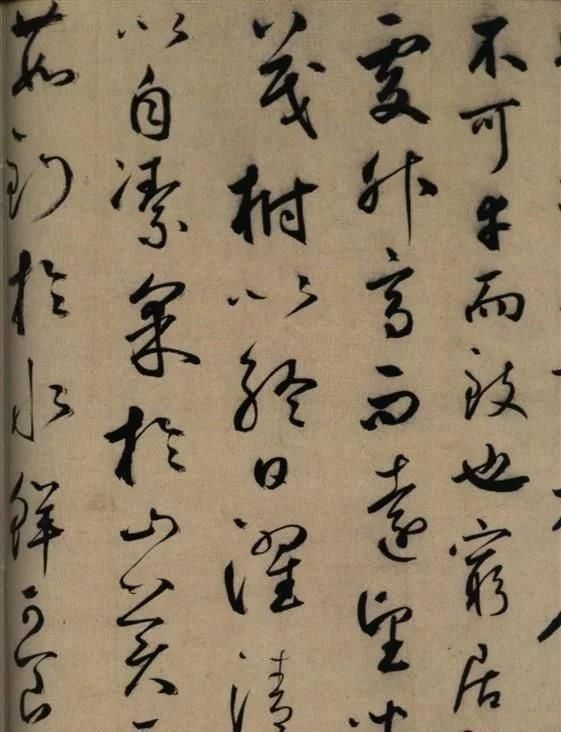 不可幸而致也窮居
處升高而遠望
茂樹以終日濯清
以自潔采於山美
茹釣於水鮮可食